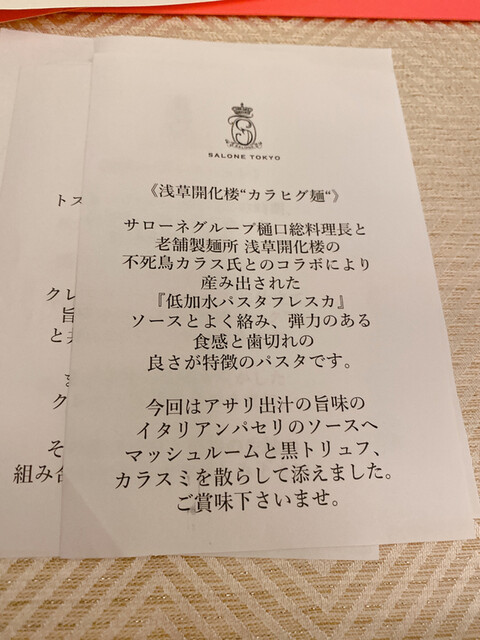 SALONE TOKYO
《浅草開化楼“カラヒグ麺“》
サローネグループ樋口総料理長と
老舗製麺所 浅草開化楼の
不死鳥カラス氏とのコラボにより
産み出された
『低加水パスタフレスカ』
ソースとよく絡み、弾力のある
食感と歯切れの
良さが特徴のパスタです。
今回はアサリ出汁の旨味の
イタリアンパセリのソースへ
マッシュルームと黒トリュフ、
カラスミを散らして添えました。
ご賞味下さいませ。
トス
クレ
旨
と
ま
ク
そ
組み合